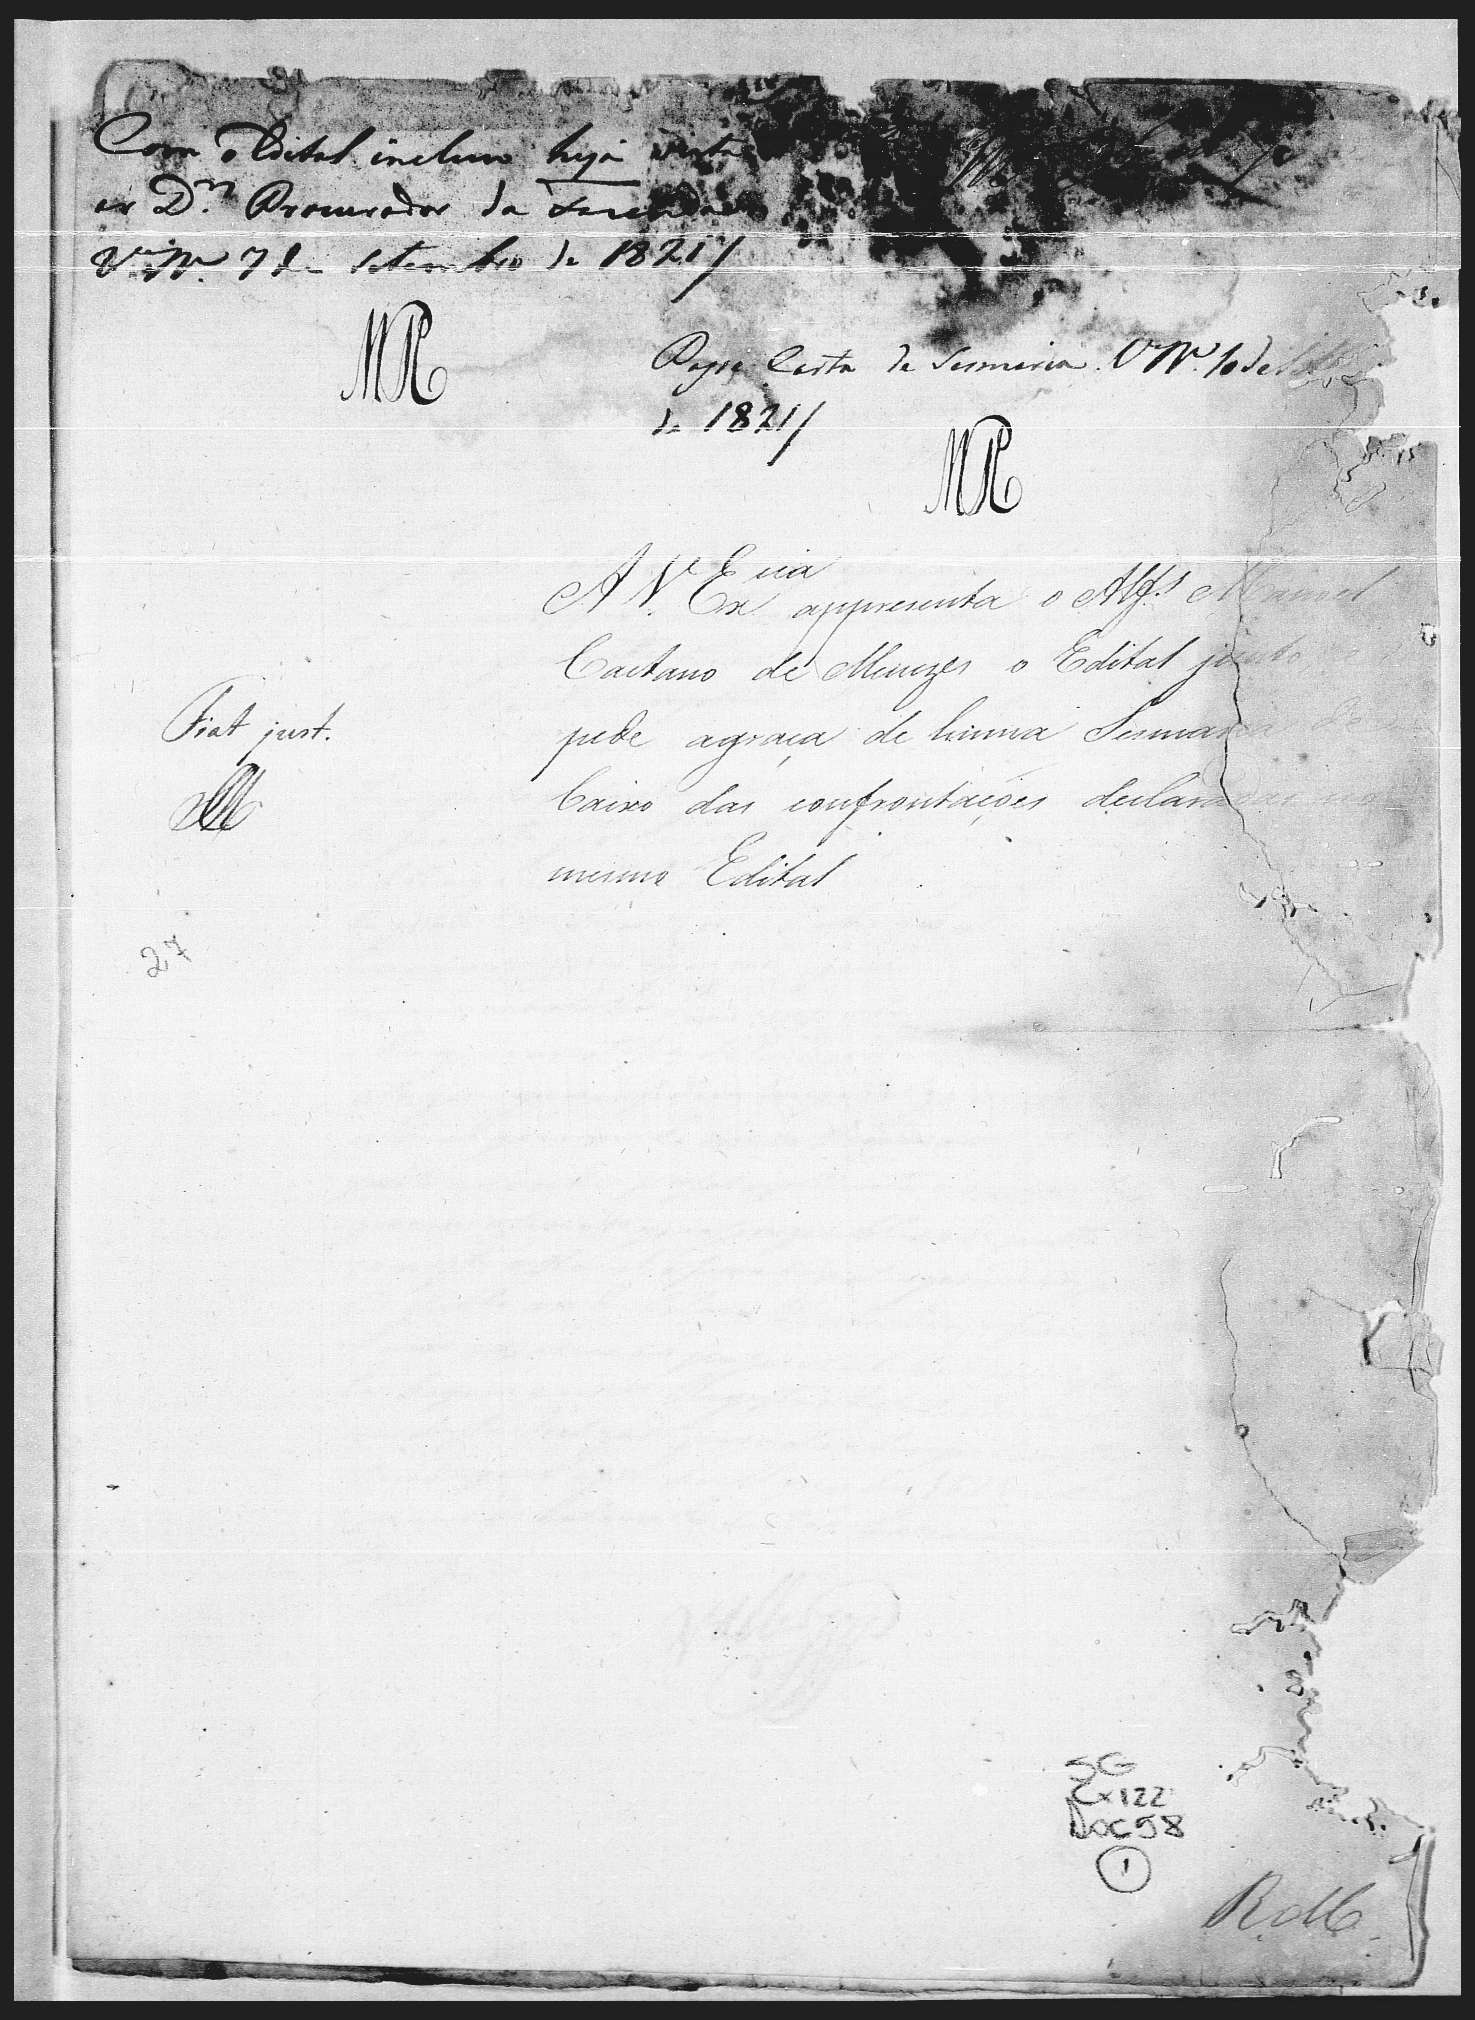 Com o Edital incluso haja vista
ao D.or Procurador da Fazenda
V.a N.a 7 de Setembro de 1821
MR
Passe Carta de Sesmaria. V.a N.a 10 de
de 1821
MR
A V.e Ex.cia appresenta o Alf.s Manoel
Caetano de Menezes o Edital junto
pede agraça de huma Sesmaria de
baixo das confrontaçoes declaradas no
mesmo Edital
Fiat just.
27
SG
Cx 122
Doc 58
1
R. M.